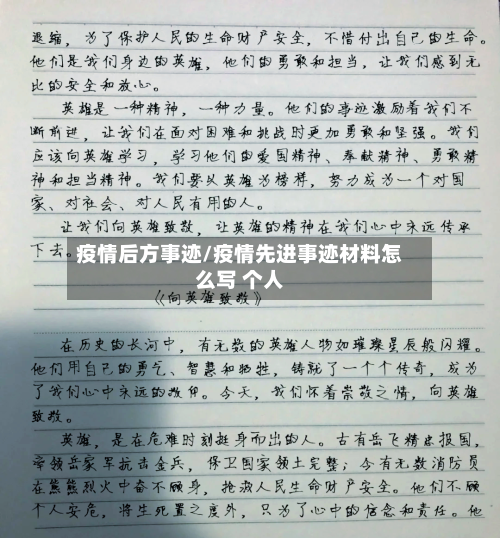 退缩，为了保护人民的生命财产安全，不惜付出自己的生命。
他们是我们身边的英雄，他们的勇敢和担当，让我们感到无
比的安全和放心。
英雄是一种精神，一种力量。他们的事迹激励着我们不
断前进，让我们在面对困难和挑战时更加勇敢和坚强。我们
应该向英雄学习，学习他们的爱国精神、奉献精神、勇敢精
神和担当精神。我们要以英雄为榜样，努力成为一个对国
家、对社会、对人民有用的人。
让我们向英雄致敬，让英雄的精神在我们心中永远传承
下去。
疫情后方事迹/疫情先进事迹材料怎
么写 个人
《向英雄致敬》
在历史的长河中，有无数的英雄人物如璀璨星辰般闪耀。
他们用自己的勇气、智慧和牺牲，铸就了一个个传奇，成为
了我们心中永远的敬仰。今天，我们怀着崇敬之情，向英雄
致敬。
英雄，是在危难时刻挺身而出的人。古有岳飞精忠报国，
率领岳家军抗击金兵，保卫国家领土完整；今有无数消防员
在熊熊烈火中奋不顾身，抢救人民生命财产安全。他们不顾
个人安危，将生死置之度外，只为了心中的信念和责任。他